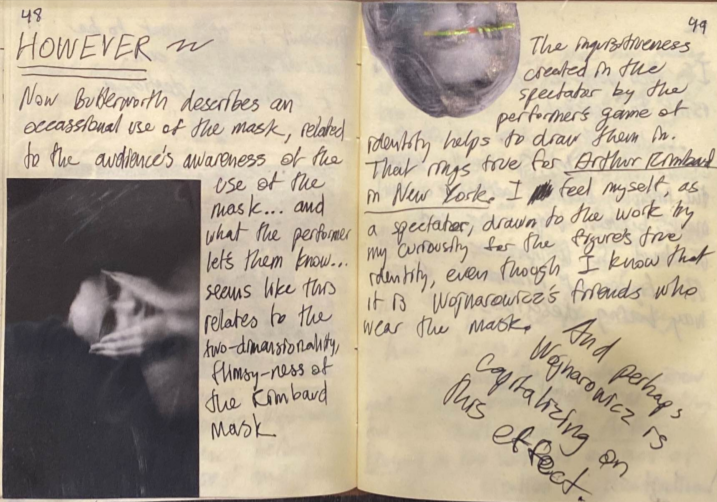 48
HOWEVER
Now Butterworth describes an
occassional use of the mask, related
to the audience's awareness of the
use of the
mask... and
what the performer
let's them know...
seems like this
relates to the
two-dimansionality,
flimsy-ness of
the Rimbaud
Mask
49
The inquisitiveness
created in the
spectator by the
performer's game of
identity helps to draw them in.
That rings true for Arthur Rimbaud
in New York. I feel myself, as
a spectator, drawn to the work by
my curiousity for the figure's true
identity, even though I know that
it is Wojnarowicz's friends who
wear the mask.
And perhaps
Wojnarowicz is
capitalizing on
this effect.